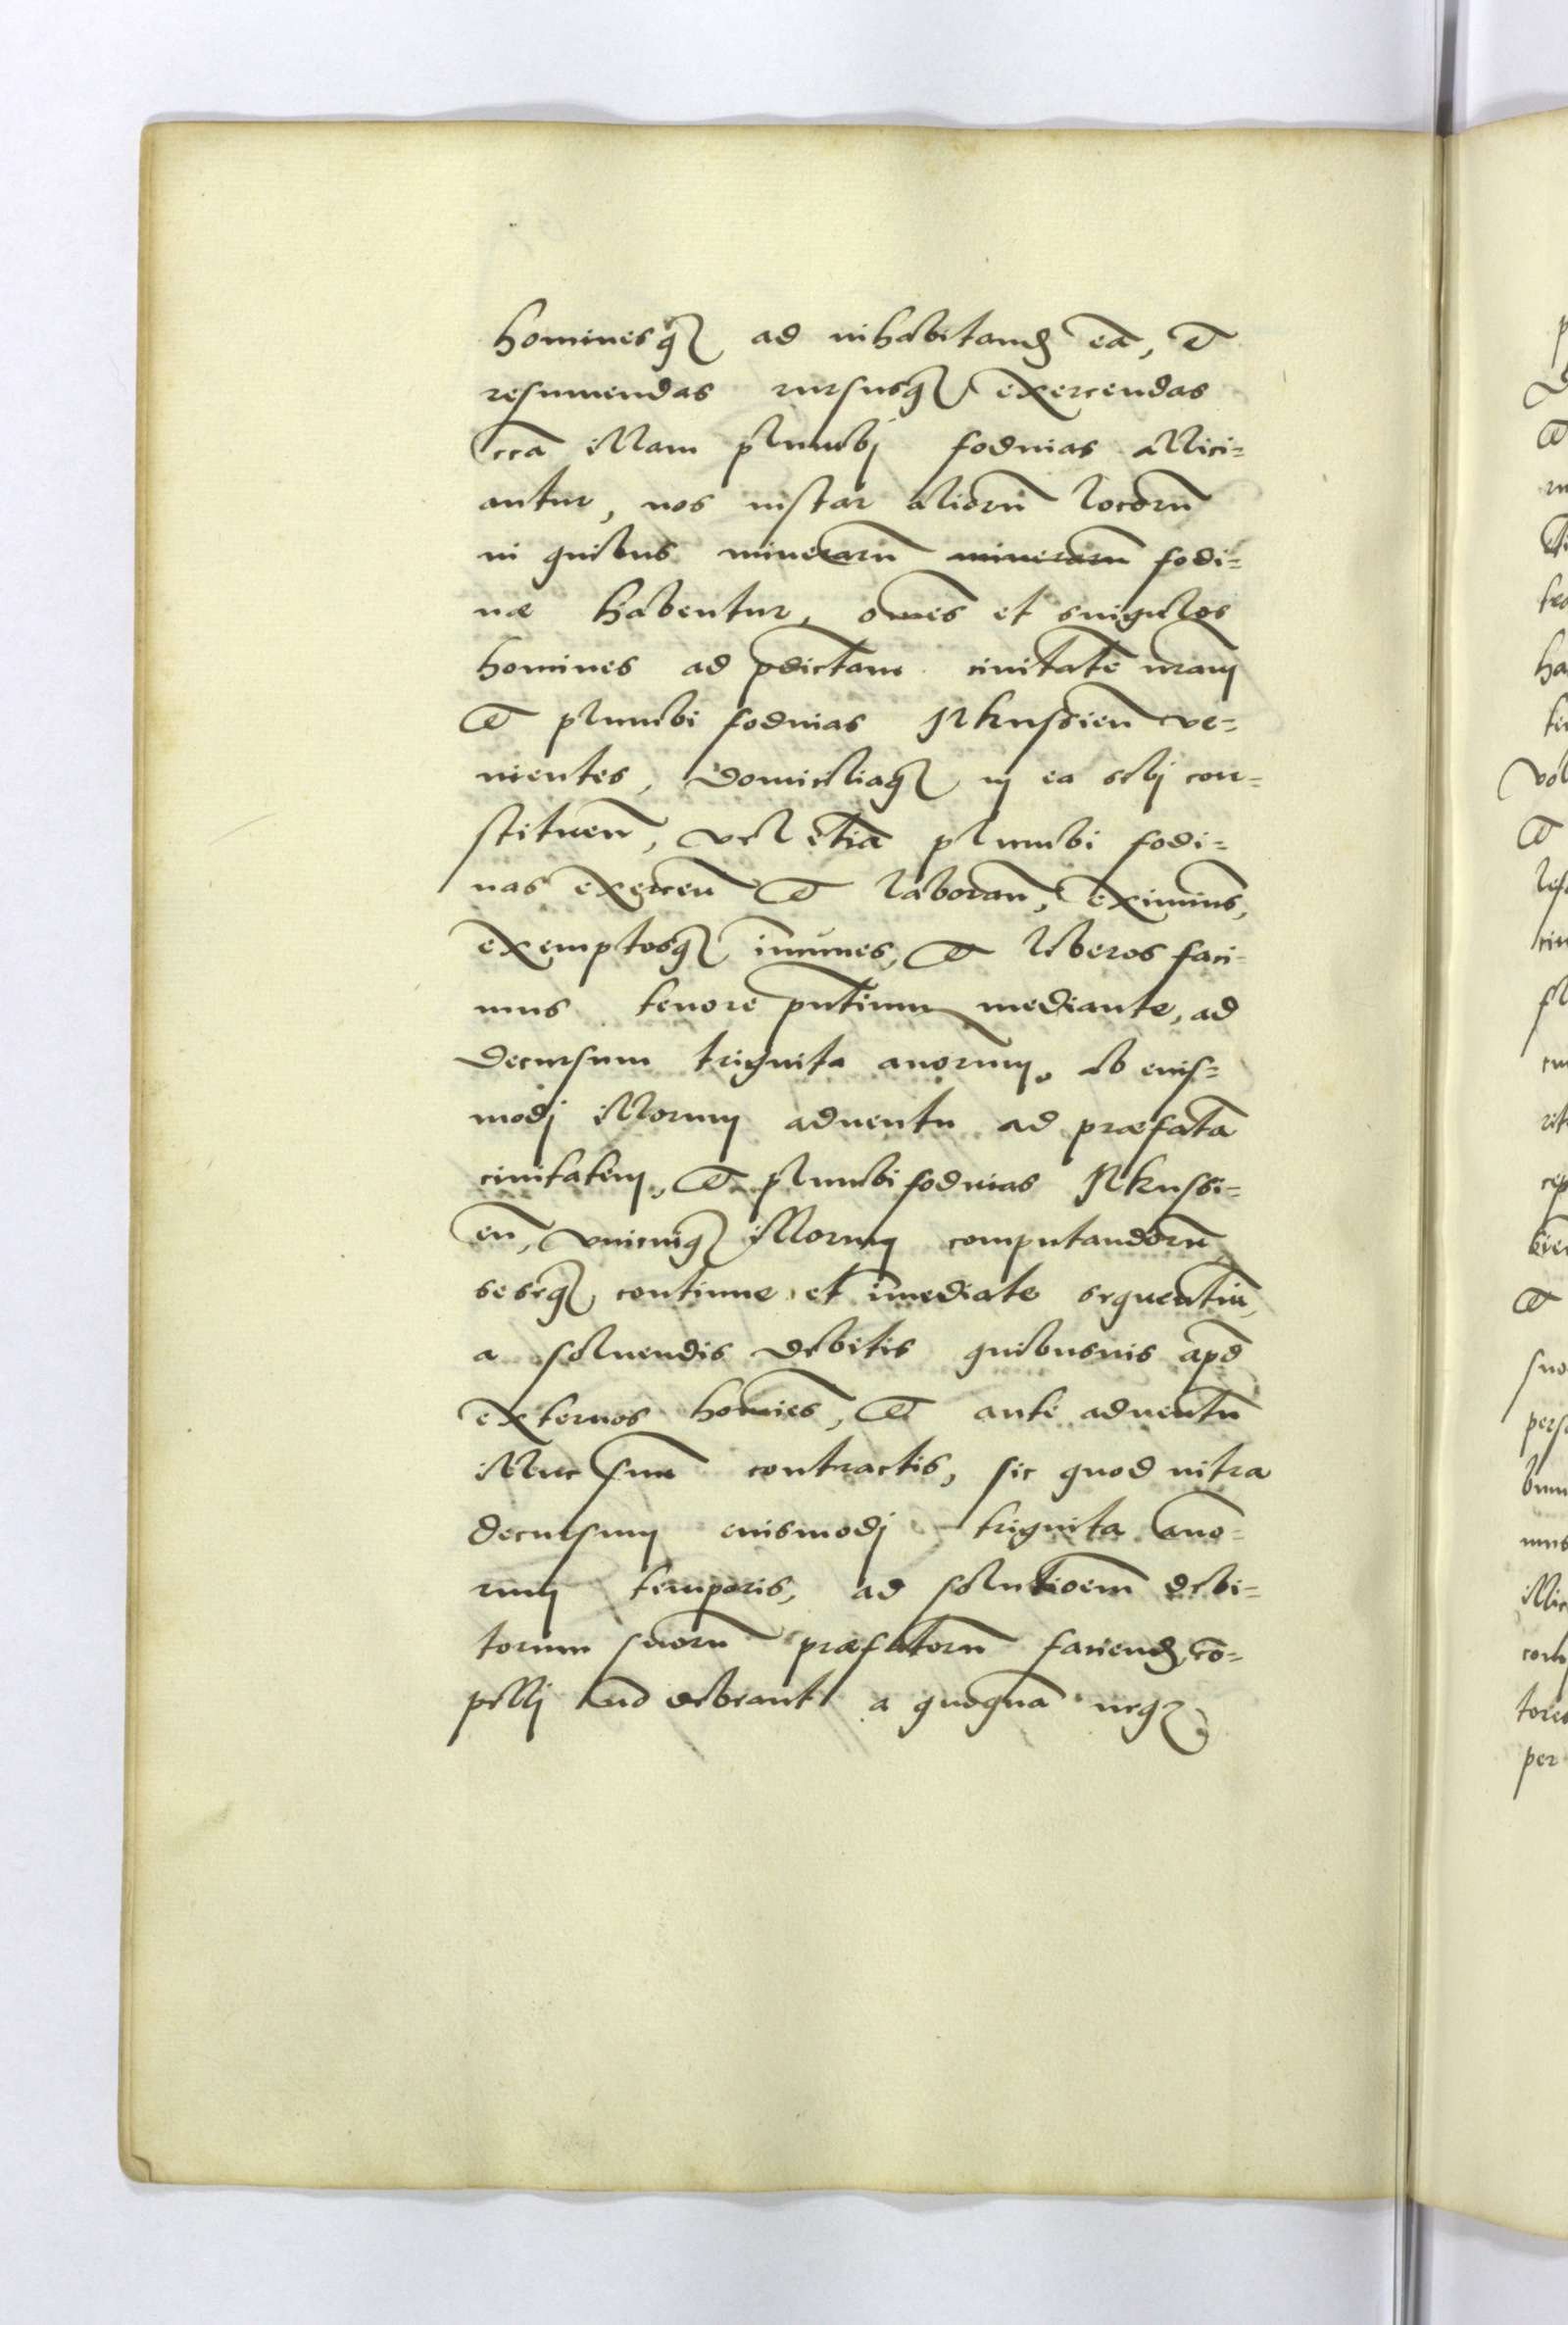 hominesq₃ ad inhabitand ea͞, et
resumendas rursusq₃ exercendas
cca͞ illam plumbj fodinas allici=
antur, nos instar alioru͞ locoru͞
in quibus mineraru͞ mineraru͞ fodi=
næ habentur, om͞es et singulos
homines ad p͞dictam ciuitate͞ n͞ram
et plumbi fodinas Ilkussien͞ ve=
nientes, domiciliaq₃ in ea sibj con=
stituen͞, vel etia͞ plumbi fodi=
nas exercen͞ et laboran͞, eximim͞s,
exemptosq₃ im͞unes, et liberos faci=
mus tenore p͞ntium mediante, ad
decursum triginta annorum, ab eius=
modj illorum aduentu ad præfata͞
ciuitatem, et plumbi fodinas Ilkussi=
en͞, vnicuiq₃ illorum computandoru͞
seseq₃ continue et im͞ediate sequentiu͞,
a soluendis debitis quibusuis ap͞d
externos homi͞es, et ante aduentu͞
illuc suu͞ contractis, sic quod intra
decursum eiusmodj triginta an͞o=
rum temporis, ad soluti͞oem debi=
torum suoru͞ præfatoru͞ faciend, co͞=
pellj no͞ debeant a quoqua͞ neq₃